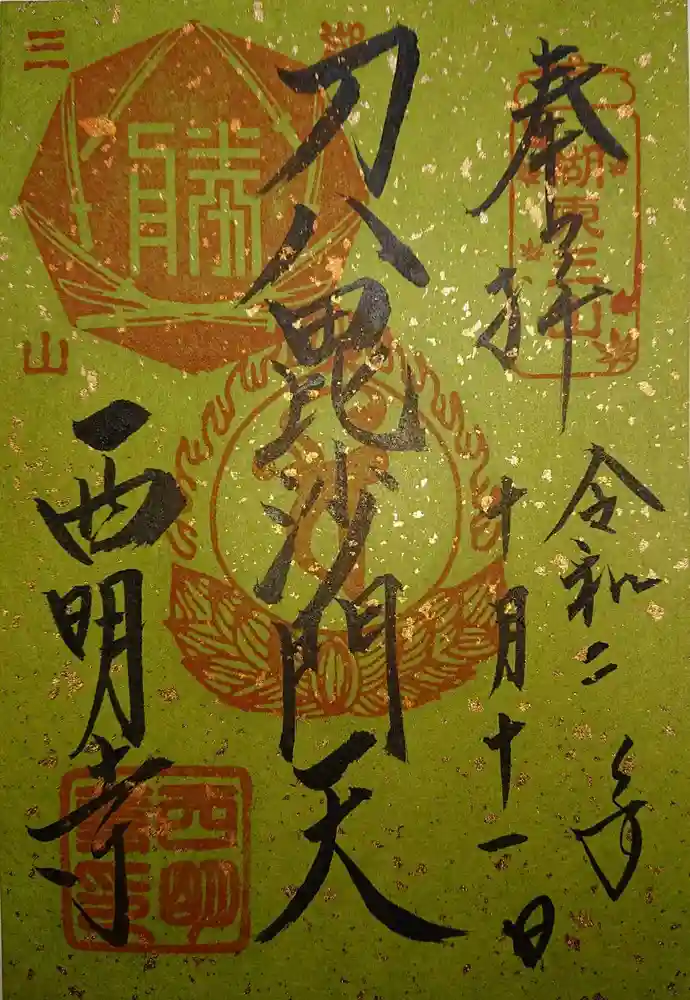 奉拝
湖東三山
令和二年
十月十一日
刀八毘沙門天
勝
三
山
西明寺
西明
寺印